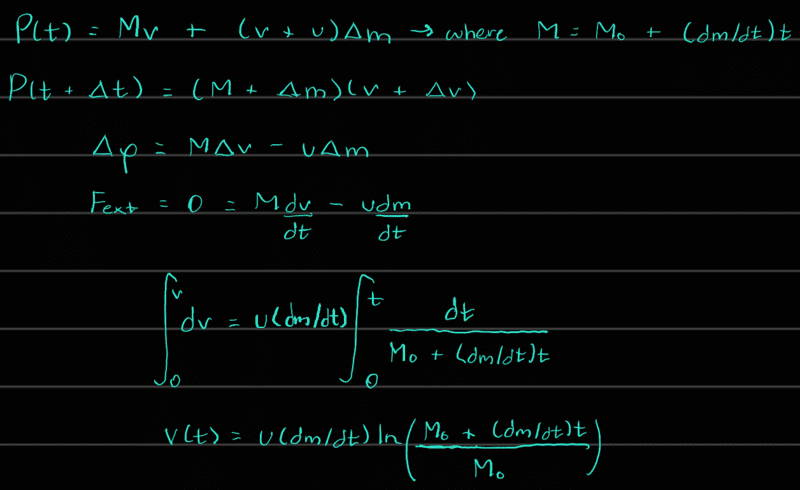 P(t) = Mv + (v + u)Δm → where M = M₀ + (dm/dt)t
P(t + Δt) = (M + Δm)(v + Δv)
Δp = MΔv - uΔm
Fext = 0 = M dv/dt - u dm/dt
∫₀ᵛ dv = u(dm/dt) ∫₀ᵗ dt / (M₀ + (dm/dt)t)
v(t) = u(dm/dt) ln((M₀ + (dm/dt)t) / M₀)